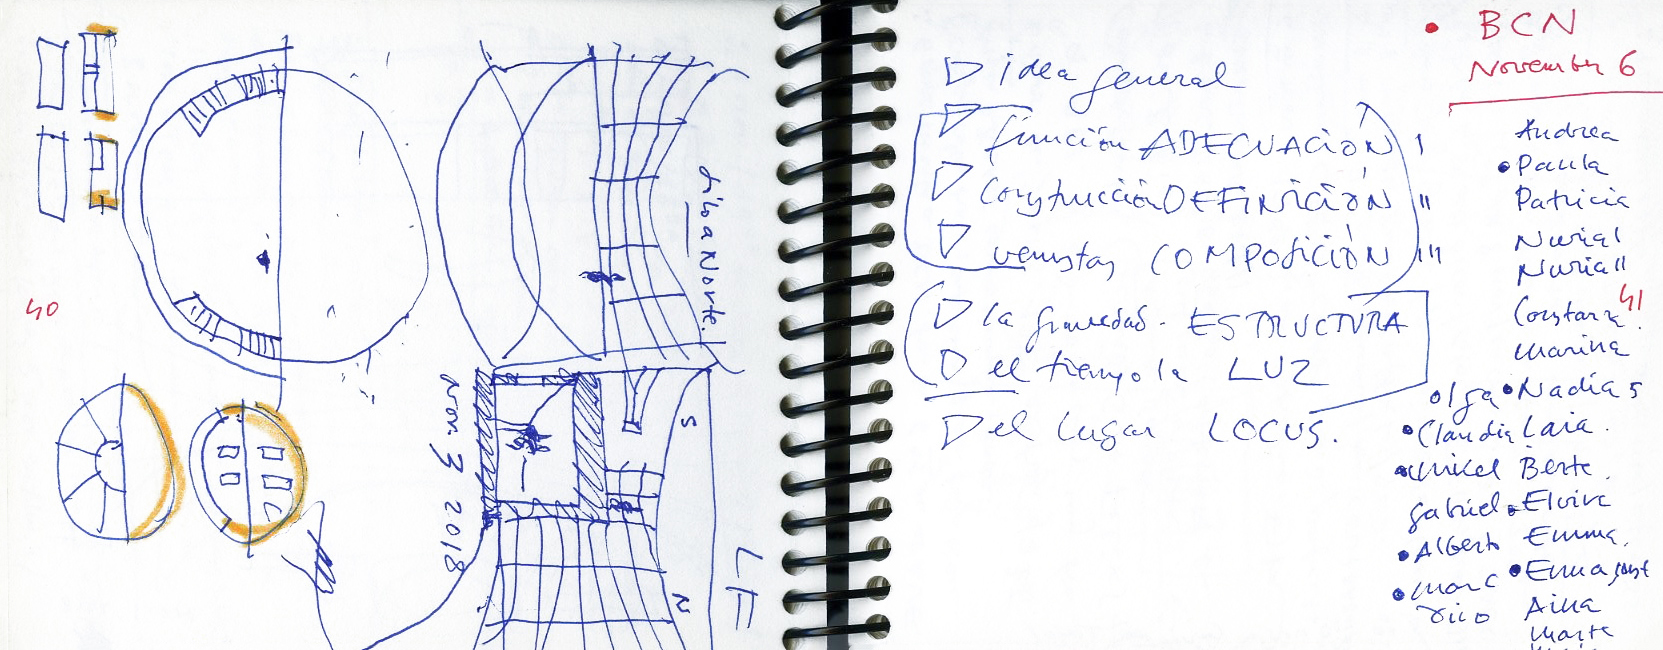 silo a Norte.
Nov 3 2018
S
N
LF
40
▷ idea general
▷ función ADECUACIÓN I
▷ Construcción DEFINICIÓN II
▷ venustas COMPOSICIÓN III
▷ la gravedad - ESTRUCTURA
▷ el tiempo la LUZ
▷ el lugar LOCUS.
• BCN
November 6
Andrea
• Paula
Patricia
Nuria I
Nuria II
41
Marina
Olga • Nadia S
• Claudia Laia.
• Mikel Berte.
Gabriel • Elvira
• Alberto Emma.
• Marc • Emma
Aina